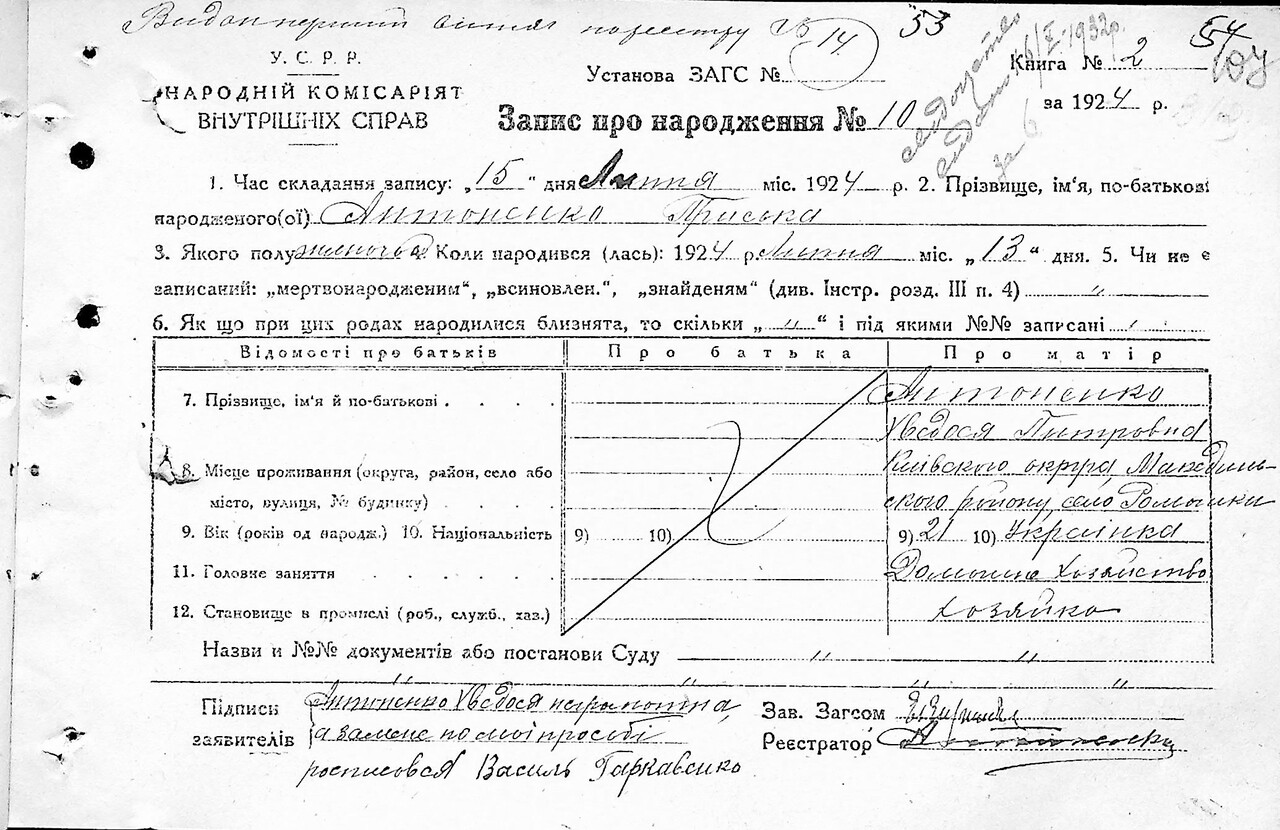 Видан перший витяг по реєстру №
53
54
107
У. С. Р. Р.
НАРОДНІЙ КОМІСАРІЯТ
ВНУТРІШНІХ СПРАВ
Установа ЗАГС № 14
Книга № 2
за 1924 р.
1932 р.
за 6
Запис про народження № 10
1. Час складання запису: „15“ дня Липня міс. 1924 р. 2. Прізвище, ім'я, по-батькові
народженого(ої) Антоненко Приська
3. Якого полу женого 4. Коли народився (лась): 1924 р. Липня міс. „13“ дня. 5. Чи не є
записаний: „мертвонародженим“, „всиновлен.“, „знайденям“ (див. Інстр. розд. III п. 4) „
6. Як що при цих родах народилися близнята, то скільки „ „ “ і під якими №№ записані
Відомості про батьків Про батька Про матір
7. Прізвище, ім'я й по-батькові . . . . Антоненко
Хведося Питровна
8. Місце проживання (округа, район, село або Київского округа, Макединь-
місто, вулиця, № будинку) . . . . ского району село Ромашки
9. Вік (років од народж.) 10. Національність 9) 10) 9) 21 10) Українка
11. Головне заняття . . . . . Домашнє хозяйство
12. Становище в промислі (роб., служб., хаз.) хозяйка
Назви и №№ документів або постанови Суду „ „
„ „ „ „
Підписи Антоненко Хведося неграмотна,
заявителів а замене по моі просьбі
росписовся Василь Гаркавенко
Зав. Загсом
Реєстратор